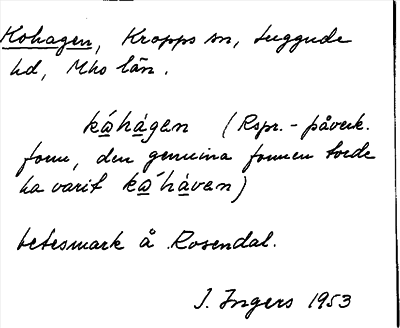 Kohagen, Kropps sn, Luggude
hd, Mhs län.
káhágen (Rspr.-påverk.
form, den genuina formen torde
ha varit káhávan)
betesmark å Rosendal.
I. Ingers 1953